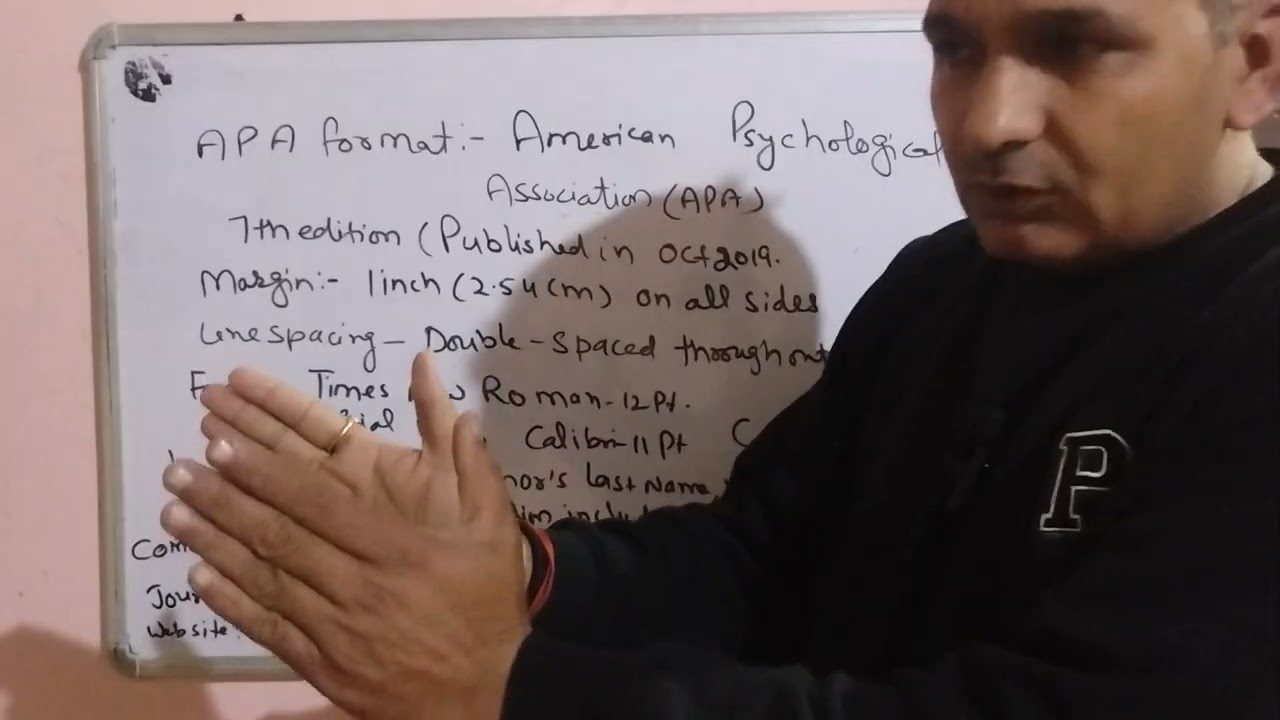 APA format:- American Psychological
Association (APA)
7th edition (Published in Oct 2019.
Margin:- 1inch (2.54cm) on all sides
Line spacing - Double-spaced throughout
Times Roman-12Pt.
Calibri-11Pt
Last Name
Website
P